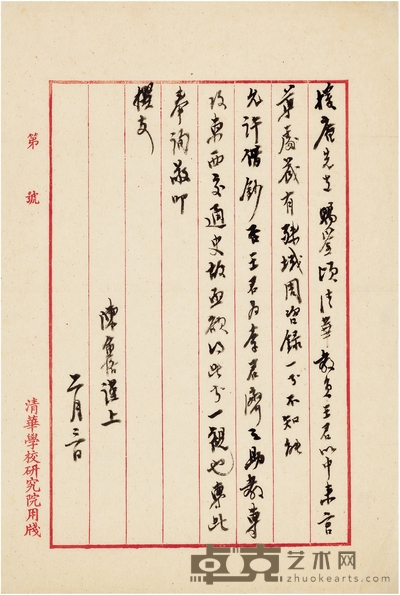 援庵先生賜鑒頃清華教員王君以中來言
尊處藏有殊域周咨錄一書不知能
允許借鈔否王君為李君濟之助教專
攻東西交通史故亟欲得此書一觀也專此
奉詢敬叩
撰安
陳寅恪謹上
二月三日
第 號
清華學校研究院用牋
卓克艺术网
zhuokearts.com